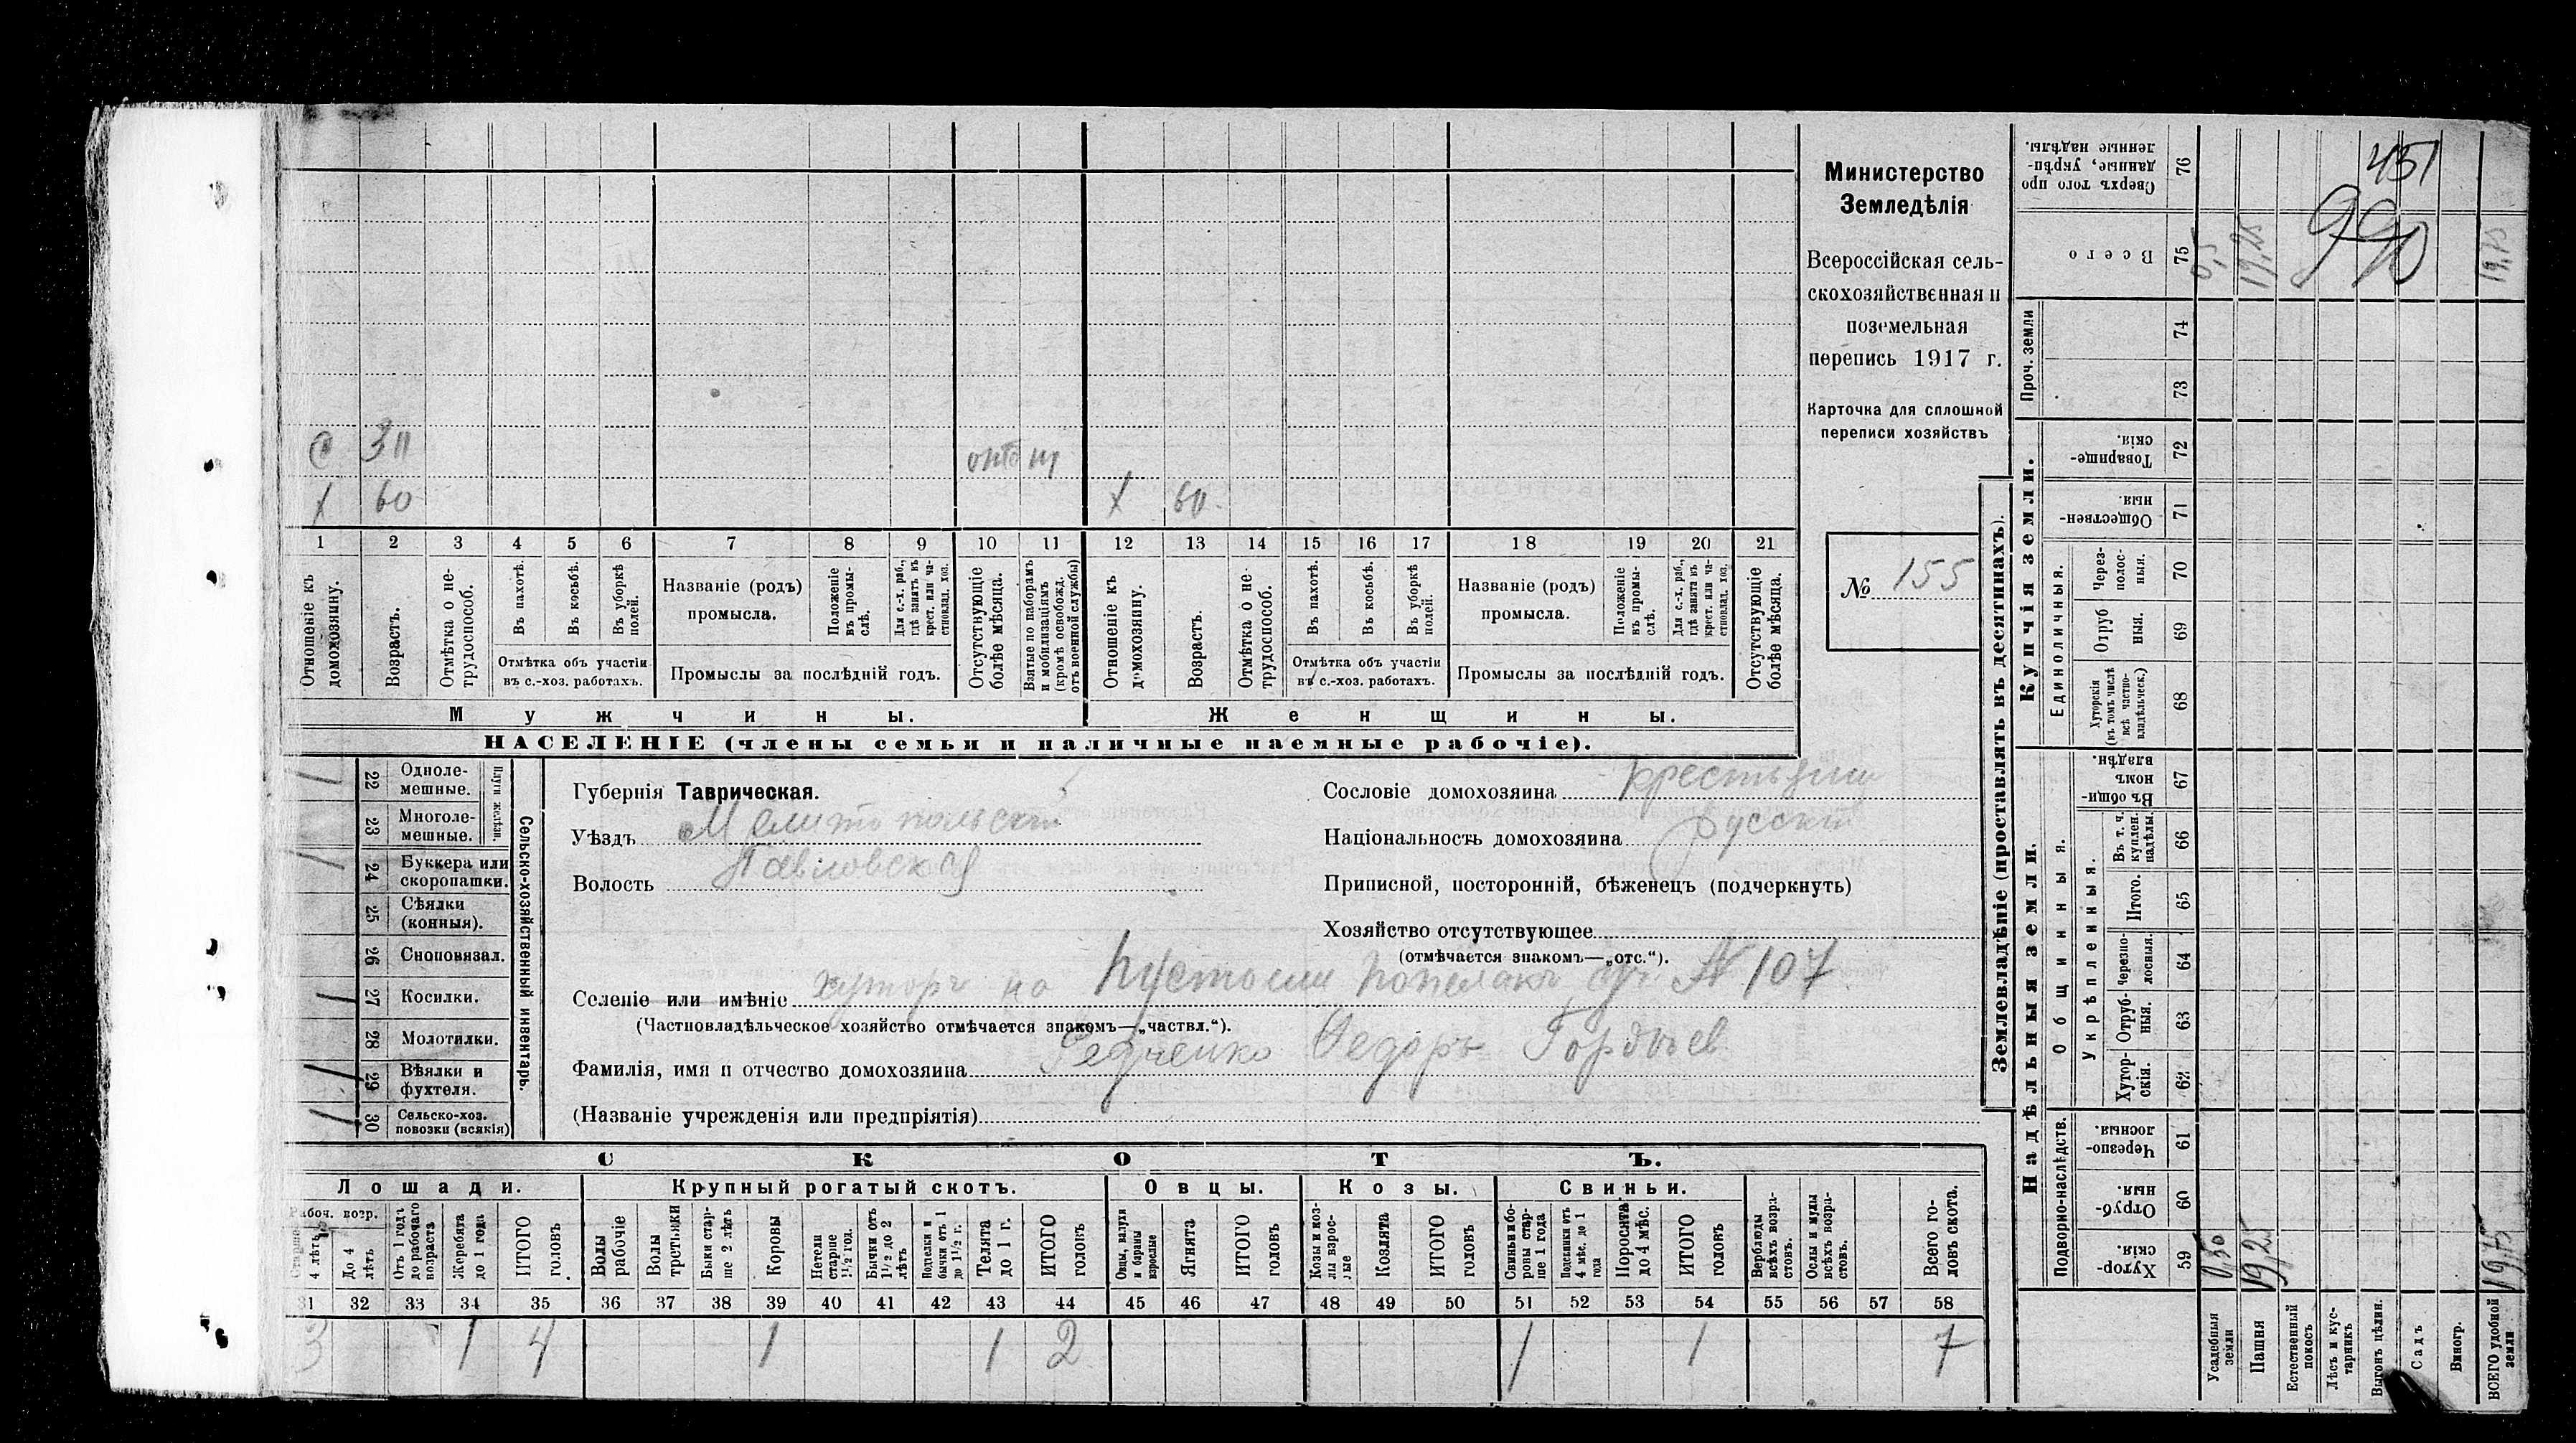 Министерство
Земледѣлія
Всероссійская сель-
скохозяйственная и
поземельная
перепись 1917 г.
Карточка для сплошной
переписи хозяйствъ
№ 155
С 30
X 60
X 60
1 2 3 4 5 6 7 8 9 10 11 12 13 14 15 16 17 18 19 20 21
Отношеніе къ домохозяину.
Возрастъ.
Отмѣтка о не-трудоспособ.
Въ пахотѣ.
Въ косьбѣ.
Въ уборкѣ полей.
Отмѣтка объ участіи
въ с.-хоз. работахъ.
Названіе (родъ)
промысла.
Положеніе въ промы-слѣ.
Для с.-х. раб., гдѣ занятъ въ крест. или ча-стновлад. хоз.
Промыслы за послѣдній годъ.
Отсутствующіе болѣе мѣсяца.
Взятые по наборамъ и мобилизаціямъ (кромѣ освобожд. отъ военной службы)
Отношеніе къ домохозяину.
Возрастъ.
Отмѣтка о не-трудоспособ.
Въ пахотѣ.
Въ косьбѣ.
Въ уборкѣ полей.
Отмѣтка объ участіи
въ с.-хоз. работахъ.
Названіе (родъ)
промысла.
Положеніе въ промы-слѣ.
Для с.-х. раб., гдѣ занята въ крест. или ча-стновлад. хоз.
Промыслы за послѣдній годъ.
Отсутствующіе болѣе мѣсяца.
Мужчины.
Женщины.
НАСЕЛЕНІЕ (члены семьи и наличные наемные рабочіе).
Сельско-хозяйственный инвентарь.
Плуги желѣзн.
1 22 Одноле-мешные.
23 Многоле-мешные.
1 24 Буккера или скоропашки.
25 Сѣялки (конныя).
26 Сноповязал.
1 27 Косилки.
28 Молотилки.
1 29 Вѣялки и фухтеля.
1 30 Сельско-хоз. повозки (всякія)
Губернія Таврическая.
Уѣздъ Мелитопольскій
Волость Павловская
Сословіе домохозяина крестьянин
Національность домохозяина русскій
Приписной, посторонній, бѣженецъ (подчеркнуть)
Хозяйство отсутствующее
(отмѣчается знакомъ—„отс.“).
Селеніе или имѣніе хуторъ на № 107
(Частновладѣльческое хозяйство отмѣчается знакомъ—„частвл.“).
Фамилія, имя и отчество домохозяина Редченко Федоръ Гордѣев
(Названіе учрежденія или предпріятія)
СКОТЪ.
Лошади.
Крупный рогатый скотъ.
Овцы.
Козы.
Свиньи.
Рабоч. возр.
Старше 4 лѣтъ
До 4 лѣтъ
Отъ 1 года до рабочаго возраста
Жеребята до 1 года
ИТОГО головъ
Волы рабочіе
Волы третьяки
Быки стар-ше 2 лѣтъ
Коровы
Нетели старше 1 1/2 год.
Бычки отъ 1 1/2 до 2 лѣтъ
Подтелки и бычки отъ 1 до 1 1/2 г.
Телята до 1 г.
ИТОГО головъ
Овцы, валухи и бараны взрослые
Ягнята
ИТОГО головъ
Козы и коз-лы взрос-лые
Козлята
ИТОГО головъ
Свиньи и бо-ровы стар-ше 1 года
Подсвинки отъ 4 мѣс. до 1 года
Поросята до 4 мѣс.
ИТОГО головъ
Верблюды всѣхъ возра-стовъ.
Ослы и мулы всѣхъ возра-стовъ.
Всего го-ловъ скота.
31 32 33 34 35 36 37 38 39 40 41 42 43 44 45 46 47 48 49 50 51 52 53 54 55 56 57 58
3 1 4 1 1 2 1 1 7
Землевладѣніе (проставлять въ десятинахъ).
Надѣльныя земли.
Купчія земли.
Проч. земли
Подворно-наслѣдств.
Общинныя.
Укрѣпленныя.
Единоличныя.
Хутор-скія. 59
Отруб-ныя. 60
Черезпо-лосныя. 61
Хутор-скія. 62
Отруб-ныя. 63
Черезпо-лосныя. 64
Итого. 65
Въ т. ч. куплен. надѣлы. 66
Въ общин-номъ владѣн. 67
Хуторскія (въ томъ числѣ всѣ частно-владѣльческ.) 68
Отруб ныя. 69
Через-полос-ныя. 70
Обществен-ныя. 71
Товарище-скія. 72
73
74
Всего 75
Сверхъ того про данные, укрѣп-ленные надѣлы. 76
Усадебная земли 0,50 0,5
Пашня 19,25 19,25
Естественный покосъ
Лѣсъ и кус-тарникъ
Выгонъ цѣлин.
Садъ
Виногр.
ВСЕГО удобной земли 19,75 19,75
451
990